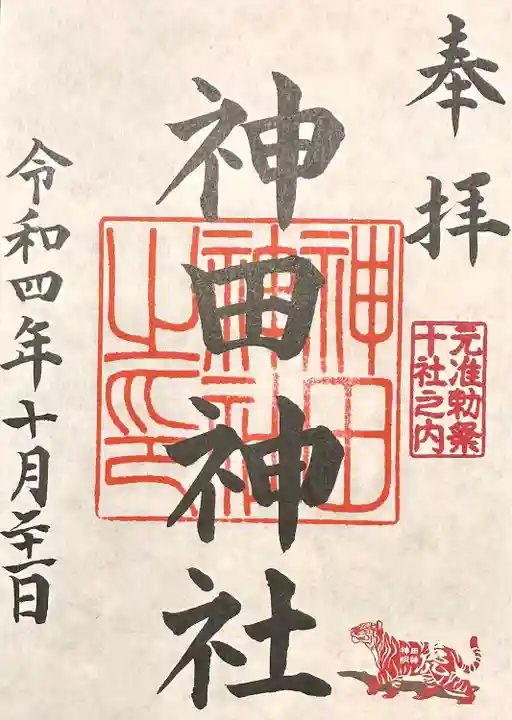 奉拝
元准勅祭
十社之内
神田神社
神田
神社
之印
令和四年十月二十一日
神田明神